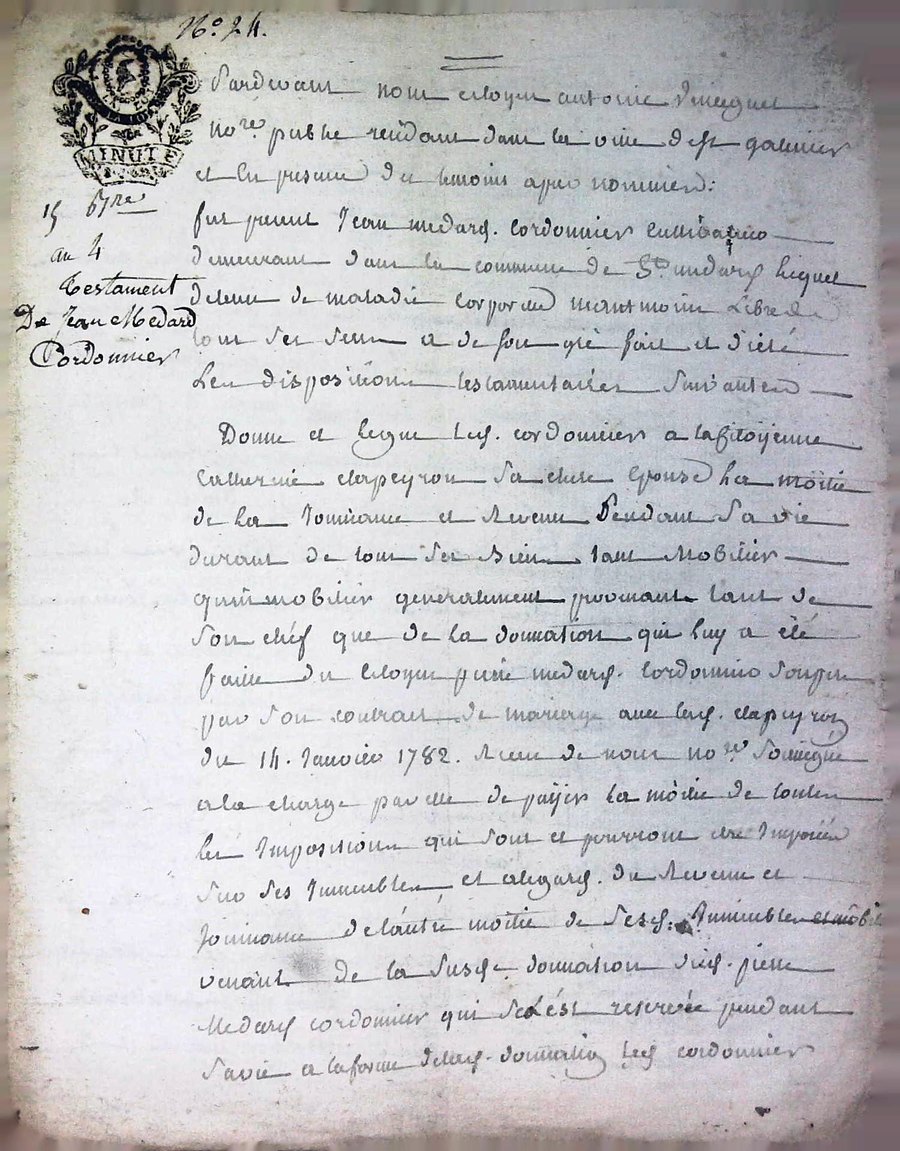 N.o 24.
MINUTE
15 bre
an 4
Testament
De Jean Medard
Cordonnier
Pardevant nous citoyen antoine
no.re public residant dans la ville de st galmier
et en presence des temoins apres nommés:
fut present Jean medard. Cordonnier Cultivateur
demeurant dans la commune de St medard lequel
detenu de maladie corporelle neantmoins Libre de
tous ses sens a de son gré fait et dicté
Les dispositions testamentaires suivantes
Donne et legue led. cordonnier a la Citoyenne
Catherine clapeyron sa chere Epouse La moitié
de la Jouissance et Revenu Pendant sa vie
durant de tous ses Biens tant Mobilier
qu'immobilier generalement provenants tant de
son chef que de la donnation qui luy a été
faitte du Citoyen pierre medard. Cordonnier son pere
par son contrat de mariage avec lad. clapeyron
du 14. Janvier 1782. Recu de nous no.re soussigné
a la charge par elle de païer la moitié de touttes
les Impositions qui sont et pourront etre Imposées
sur ses Immeubles et alegard. du Revenu et
Jouissance de l'autre moitié de sesd. Immeubles et mobil
venant de la susd.e donnation dud. pierre
Medard cordonnier qui se l'est reservée pendant
sa vie a la forme de lad. donnation led cordonnier